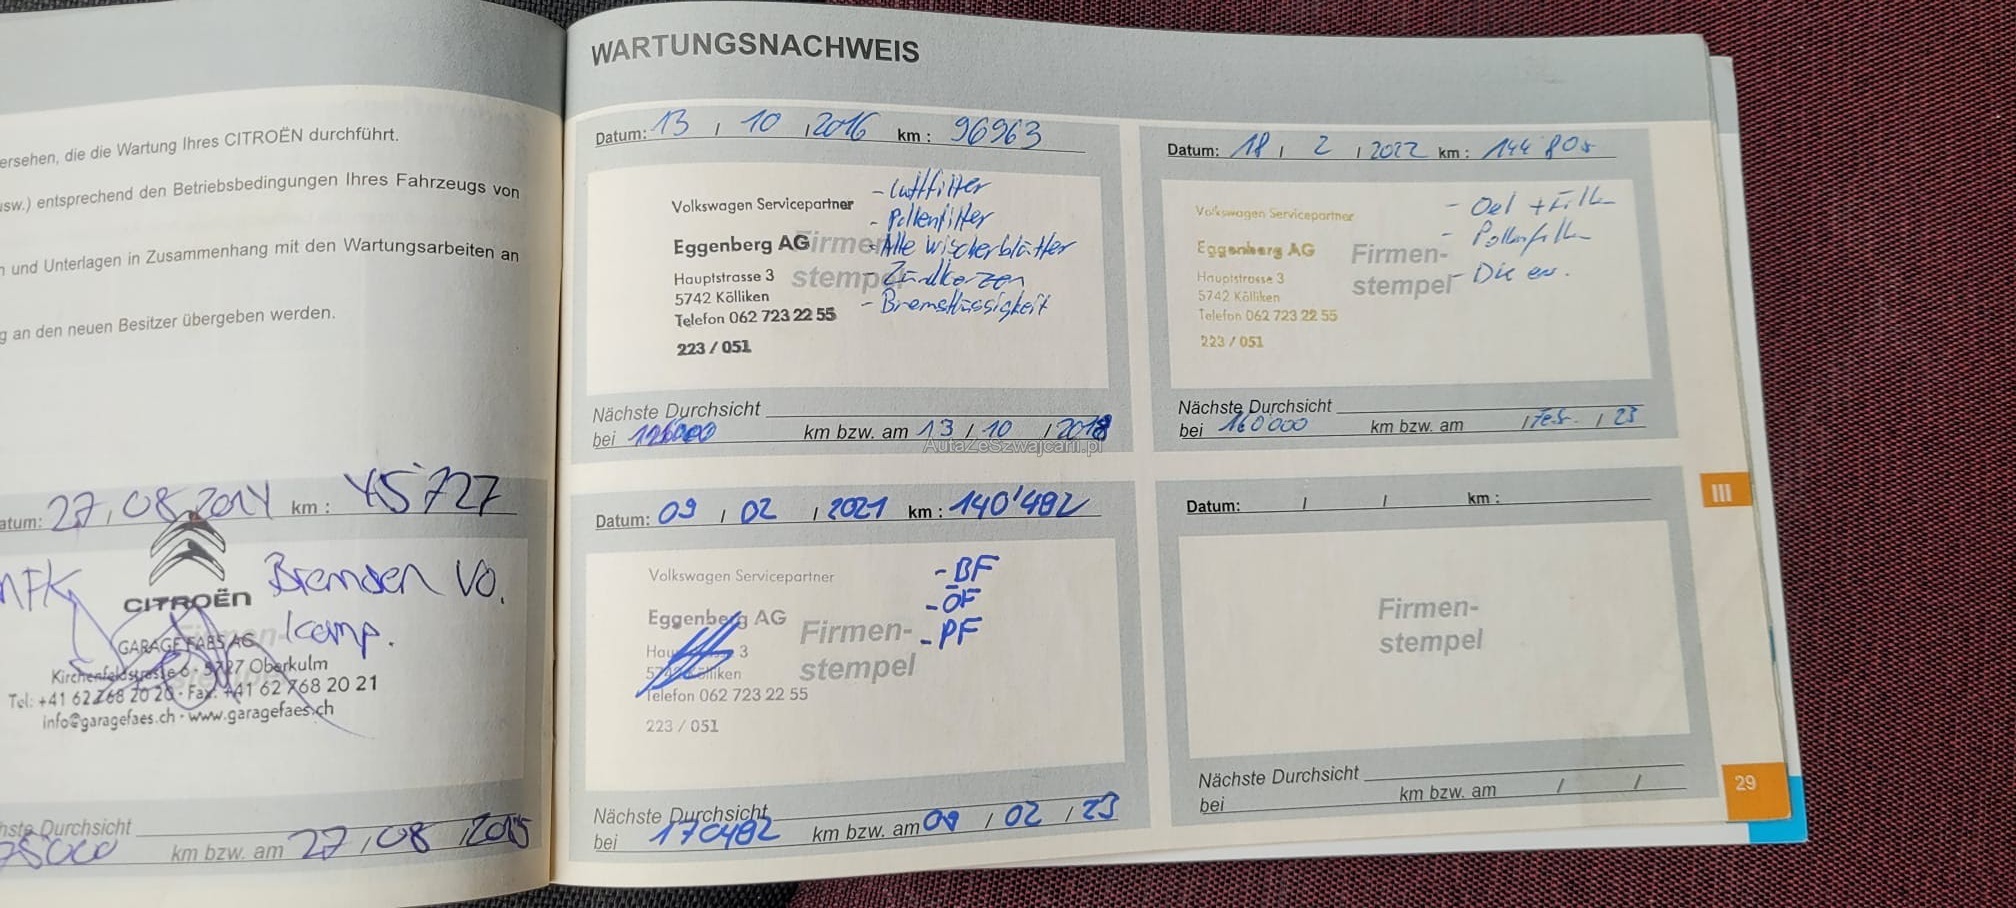 ersehen, die die Wartung Ihres CITROËN durchführt.
usw.) entsprechend den Betriebsbedingungen Ihres Fahrzeugs von
n und Unterlagen in Zusammenhang mit den Wartungsarbeiten an
g an den neuen Besitzer übergeben werden.
atum: 27, 08, 2014 km : 45'727
MFK, Bremsen vo.
CITROËN
komp.
GARAGE FAES AG
Kirchenfeldstrasse 6 · 5727 Oberkulm
Tel: +41 62 768 20 20 · Fax: +41 62 768 20 21
info@garagefaes.ch · www.garagefaes.ch
hste Durchsicht
75000 km bzw. am 27, 08, 2015
WARTUNGSNACHWEIS
Datum: 13 / 10 / 2016 km : 96963
- Luftfilter
Volkswagen Servicepartner
- Pollenfilter
Eggenberg AG
Firmen-
- Alle Wischerblätter
Hauptstrasse 3
stempel
- Zündkerzen
5742 Kölliken
- Bremsflüssigkeit
Telefon 062 723 22 55
223 / 051
Nächste Durchsicht
bei 126000 km bzw. am 13 / 10 / 2018
AutaZeSzwajcarii.pl
Datum: 09 / 02 / 2021 km : 140'482
- BF
Volkswagen Servicepartner
- ÖF
Eggenberg AG
Firmen-
- PF
Hau 3
stempel
5742 Kölliken
Telefon 062 723 22 55
223 / 051
Nächste Durchsicht
bei 170482 km bzw. am 09 / 02 / 23
Datum: 18 / 2 / 2022 km : 144 805
- Oel + Filter
Volkswagen Servicepartner
- Pollenfilter
Eggenberg AG
Firmen-
Hauptstrasse 3
stempel
5742 Kölliken
Telefon 062 723 22 55
223 / 051
Nächste Durchsicht
bei 160'000 km bzw. am / Feb. / 23
Datum: / / km :
Firmen-
stempel
Nächste Durchsicht
bei km bzw. am / /
III
29